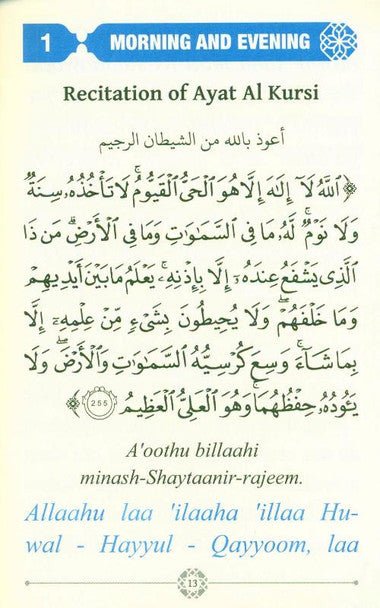 1 MORNING AND EVENING
Recitation of Ayat Al Kursi
أعوذ بالله من الشيطان الرجيم
﴿ٱللَّهُ لَآ إِلَٰهَ إِلَّا هُوَ ٱلْحَىُّ ٱلْقَيُّومُ ۚ لَا تَأْخُذُهُۥ سِنَةٌ
وَلَا نَوْمٌ ۚ لَّهُۥ مَا فِى ٱلسَّمَٰوَٰتِ وَمَا فِى ٱلْأَرْضِ ۗ مَن ذَا
ٱلَّذِى يَشْفَعُ عِندَهُۥٓ إِلَّا بِإِذْنِهِۦ ۚ يَعْلَمُ مَا بَيْنَ أَيْدِيهِمْ
وَمَا خَلْفَهُمْ ۖ وَلَا يُحِيطُونَ بِشَىْءٍ مِّنْ عِلْمِهِۦٓ إِلَّا
بِمَا شَآءَ ۚ وَسِعَ كُرْسِيُّهُ ٱلسَّمَٰوَٰتِ وَٱلْأَرْضَ ۖ وَلَا
يَـُٔودُهُۥ حِفْظُهُمَا ۚ وَهُوَ ٱلْعَلِىُّ ٱلْعَظِيمُ 255﴾
A'oothu billaahi
minash-Shaytaanir-rajeem.
Allaahu laa 'ilaaha 'illaa Hu-
wal - Hayyul - Qayyoom, laa
13